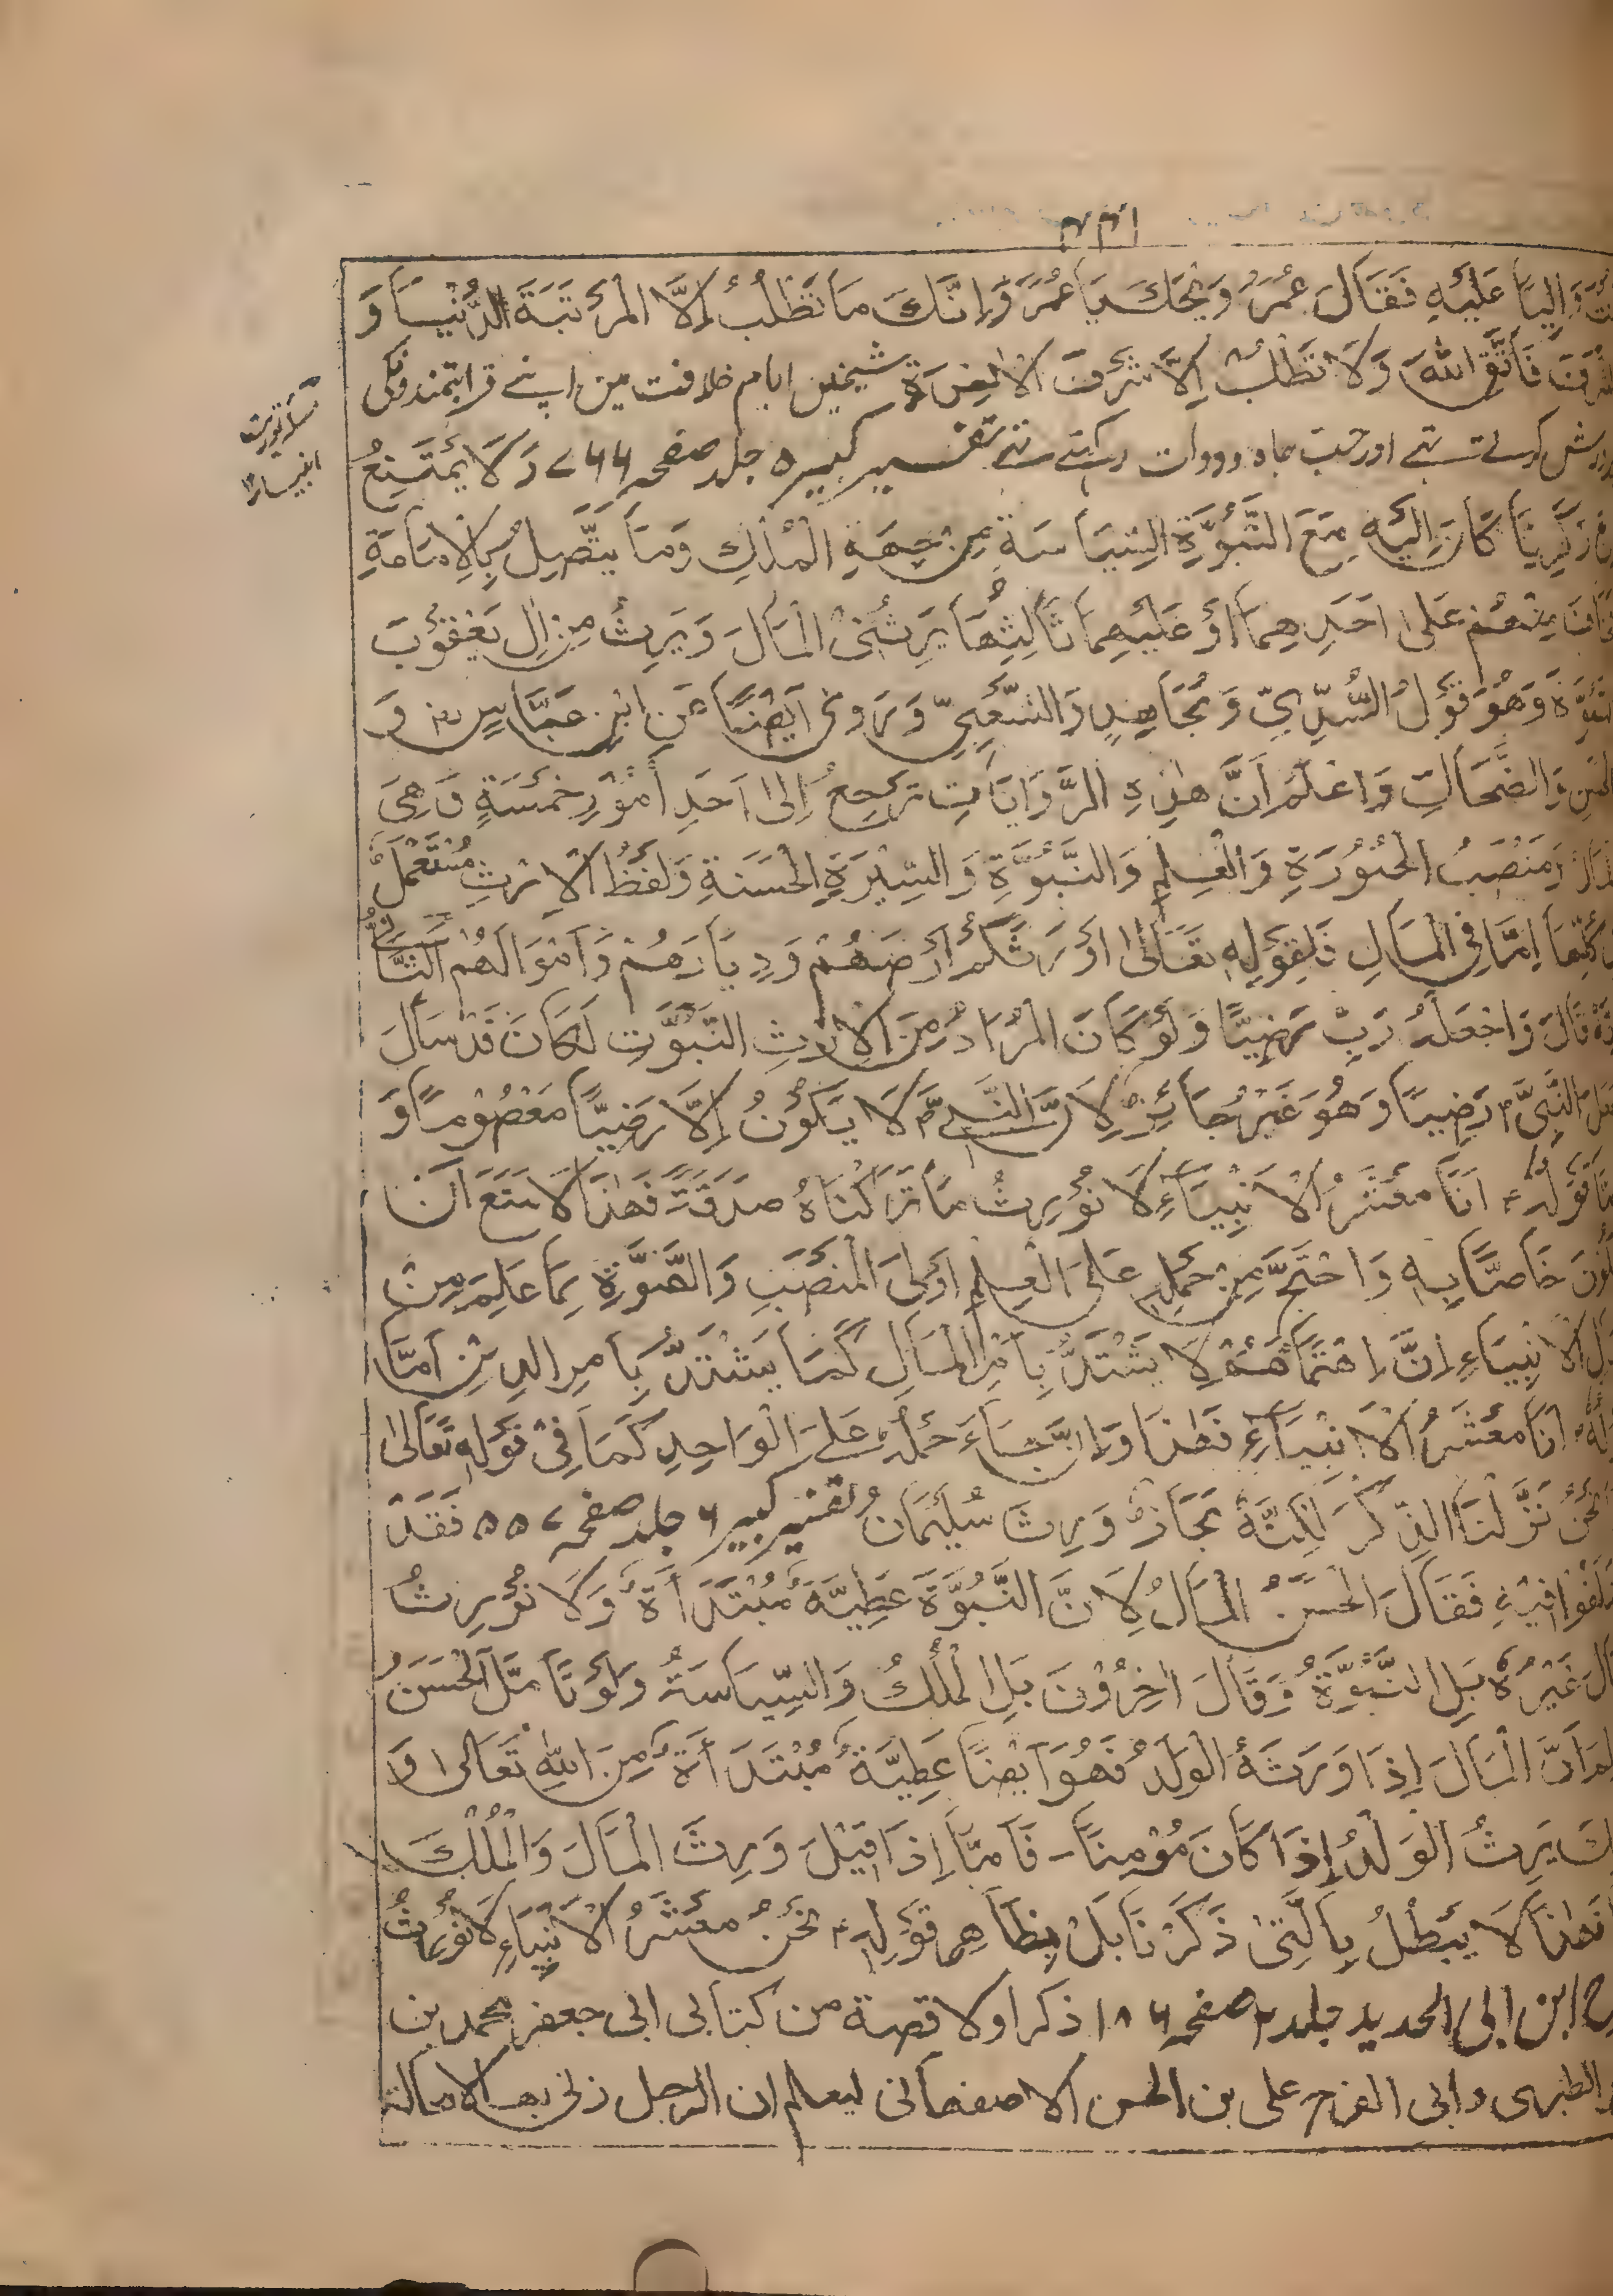 وَالِيًا عَلَيْهِ فَقَالَ عُمَرُ وَيْحَكَ يَا عُمَرَ وَإِنَّكَ مَا تَطْلُبُ إِلَّا الْمَرْتَبَةَ الدُّنْيَا وَ
فَاتَّقِ اللّٰهَ وَلَا تَطْلُبْ إِلَّا شَرَفَ الْاٰخِرَةِ شیخین ایام خلافت مین اپنے قرابتمندونکی
کرتے تہے اور حب جاہ ودولت رکہتے تہے تفسیر کبیر ۵ جلد صفحہ ۷۶۶ وَلَا يَمْتَنِعُ
زَكَرِيَّا كَانَ اِلَيْهِ مَعَ النَّبُوَّةِ السِّيَاسَةِ مِنْ جِهَةِ الْمُلْكِ وَمَا يَتَّصِلُ بِالْاِمَامَةِ
مِنْهُمْ عَلٰى اَحَدِهِمَا اَوْ عَلَيْهِمَا ثَالِثُهَا يَرِثُنِيْ الْمَالَ وَيَرِثُ مِنْ اٰلِ يَعْقُوْبَ
وَهُوَ قَوْلُ السُّدِّيِّ وَمُجَاهِدٍ وَالشَّعْبِيِّ وَرَوٰى اَيْضًا عَنِ ابْنِ عَبَّاسٍ رض وَ
وَالضَّحَاكِ وَاعْلَمْ اَنَّ هٰذِهِ الرِّوَايَاتِ تَرْجِعُ اِلٰى اَحَدِ أُمُوْرٍ خَمْسَةٍ وَهِيَ
وَمَنْصَبُ الْحَبُوْرَةِ وَالْعِلْمِ وَالنَّبُوَّةِ وَالسِّيْرَةِ الْحَسَنَةِ وَلَفْظُ الْاِرْثِ مُسْتَعْمَلٌ
كُلِّهَا اِمَّا فِي الْمَالِ فَلِقَوْلِهٖ تَعَالٰى اَوْرَثَكُمْ اَرْضَهُمْ وَدِيَارَهُمْ وَاَمْوَالَهُمْ
قَالَ وَاجْعَلْهُ رَبِّ رَضِيًّا وَلَوْ كَانَ الْمُرَادُ مِنَ الْاِرْثِ النَّبُوَّتِ لَكَانَ قَدْ سَأَلَ
النَّبِيَّ رَضِيًّا وَهُوَ غَيْرُ جَائِزٍ لِاَنَّ النَّبِيَّ لَا يَكُوْنُ اِلَّا رَضِيًّا مَعْصُوْمًا وَ
قَوْلُهٗ اَنَا مَعْشَرُ الْاَنْبِيَاءِ لَا نُوْرِثُ مَا تَرَكْنَاهُ صَدَقَةً فَهٰذَا لَا يَمْنَعُ اَنْ
خَاصًّا بِهٖ وَاحْتَجَّ مِنْ حَمْلِهٖ عَلَى الْعِلْمِ اَوْلَى الْمَنْصَبِ وَالنَّبُوَّةِ بِمَا عَلِمَ مِنْ
الْاَنْبِيَاءِ اِنَّ اهْتِمَامَهُمْ لَا يَشْتَدُّ بِاَمْرِ الْمَالِ كَمَا يَشْتَدُّ بِاَمْرِ الدِّيْنِ اَمَّا
اَنَا مَعْشَرُ الْاَنْبِيَاءِ فَهٰذَا وَاِنْ جَاءَ حَمْلُهٗ عَلَى الْوَاحِدِ كَمَا فِيْ قَوْلِهٖ تَعَالٰى
نَحْنُ نَزَّلْنَا الذِّكْرَ لٰكِنَّهٗ مَجَازٌ وَوَرِثَ سُلَيْمَانُ تفسیر کبیر ۶ جلد صفحہ ۵۵۷ فَقَدْ
فِيْهِ فَقَالَ الْحَسَنُ الْمَالُ لِاَنَّ النَّبُوَّةَ عَطِيَّةٌ مُبْتَدَأَةٌ وَلَا نُوْرِثُ
غَيْرُهٗ بَلِ النَّبُوَّةُ وَقَالَ اٰخِرُوْنَ بَلِ الْمُلْكُ وَالسِّيَاسَةُ وَلَوْ تَأَمَّلَ الْحَسَنُ
اَنَّ الْمَالَ اِذَا وَرَثَهُ الْوَلَدُ فَهُوَ اَيْضًا عَطِيَّةٌ مُبْتَدَأَةٌ مِنَ اللّٰهِ تَعَالٰى وَ
يَرِثُ الْوَلَدُ اِذَا كَانَ مُؤْمِنًا - فَاَمَّا اِذَا قِيْلَ وَرِثَ الْمَالَ وَالْمُلْكَ
فَهٰذَا لَا يَبْطُلُ بِالَّتِيْ ذَكَرْنَا بَلْ بِظَاهِرِ قَوْلِهٖ نَحْنُ مَعْشَرُ الْاَنْبِيَاءِ لَا نُوْرِثُ
ابن ابی الحدید جلد ۲ صفحہ ۱۸۶ ذکر اولا قصة من کتابی ابی جعفر محمد بن
الطبری وابی الفرج علی بن الحسن الاصفهانی لیعلم ان الرجل زنی بها لا محالة
انبیا ۱۲